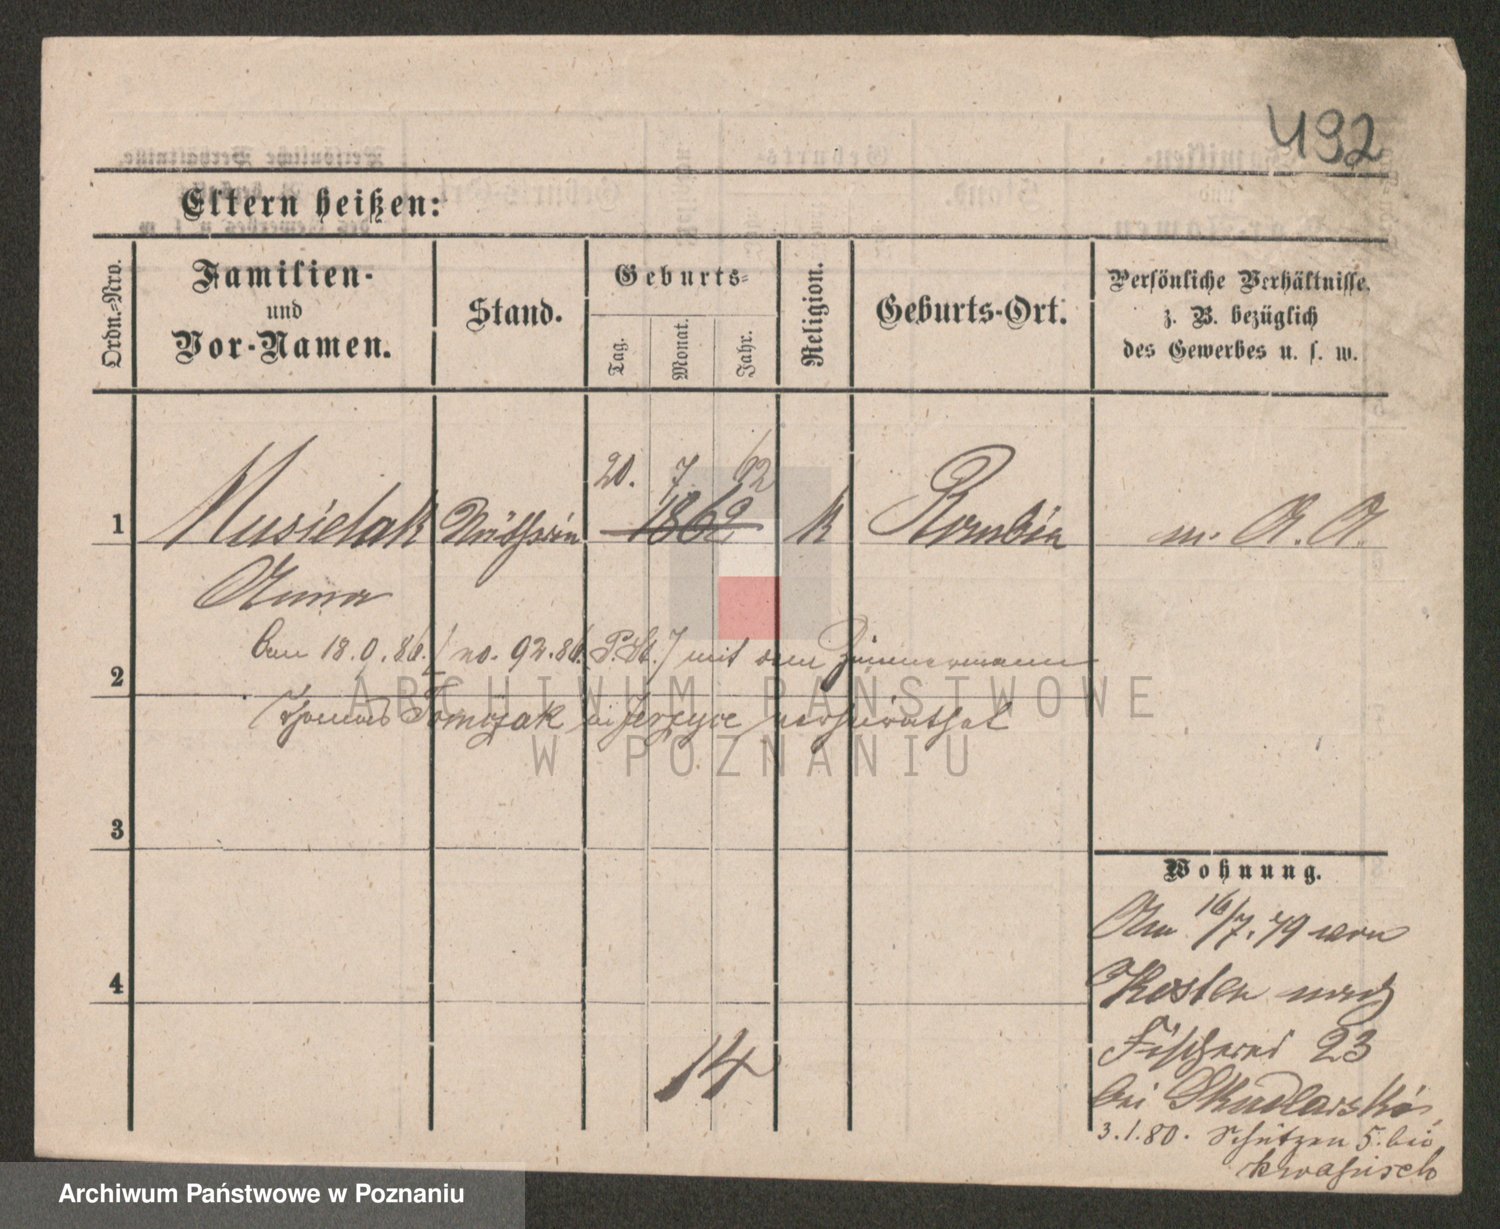 492
Eltern heißen:
Ordn.-Nro.
Familien-
und
Vor-Namen.
Stand.
Geburts-
Tag.
Monat.
Jahr.
Religion.
Geburts-Ort.
Persönliche Verhältnisse,
z. B. bezüglich
des Gewerbes u. s. w.
20. 7 62
1 Musielak 1862 k Rombin m. A. A.
Anna
am 18.9.86. / no. 92.86. P. St. / mit dem Zimmermann
2
Thomas Tomczak in Jerzyce verheirathet
ARCHIWUM PAŃSTWOWE
W POZNANIU
3
Wohnung.
Am 16/7. 79 von
Kosten nach
4
Fischerei 23
14
bei Skudlarski,
3.1.80. Schützen 5. bei
Archiwum Państwowe w Poznaniu